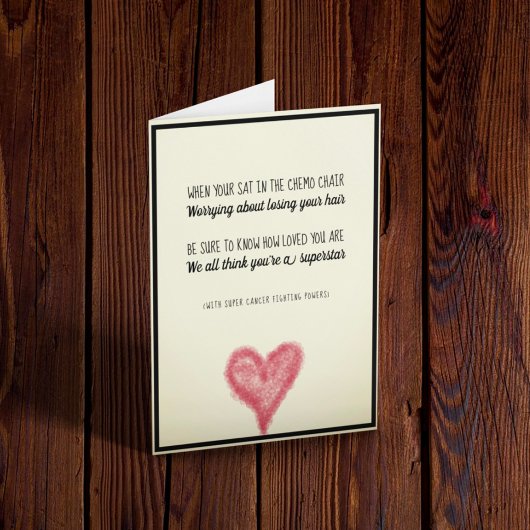 WHEN YOUR SAT IN THE CHEMO CHAIR
Worrying about losing your hair
BE SURE TO KNOW HOW LOVED YOU ARE
We all think you're a superstar
(WITH SUPER CANCER FIGHTING POWERS)